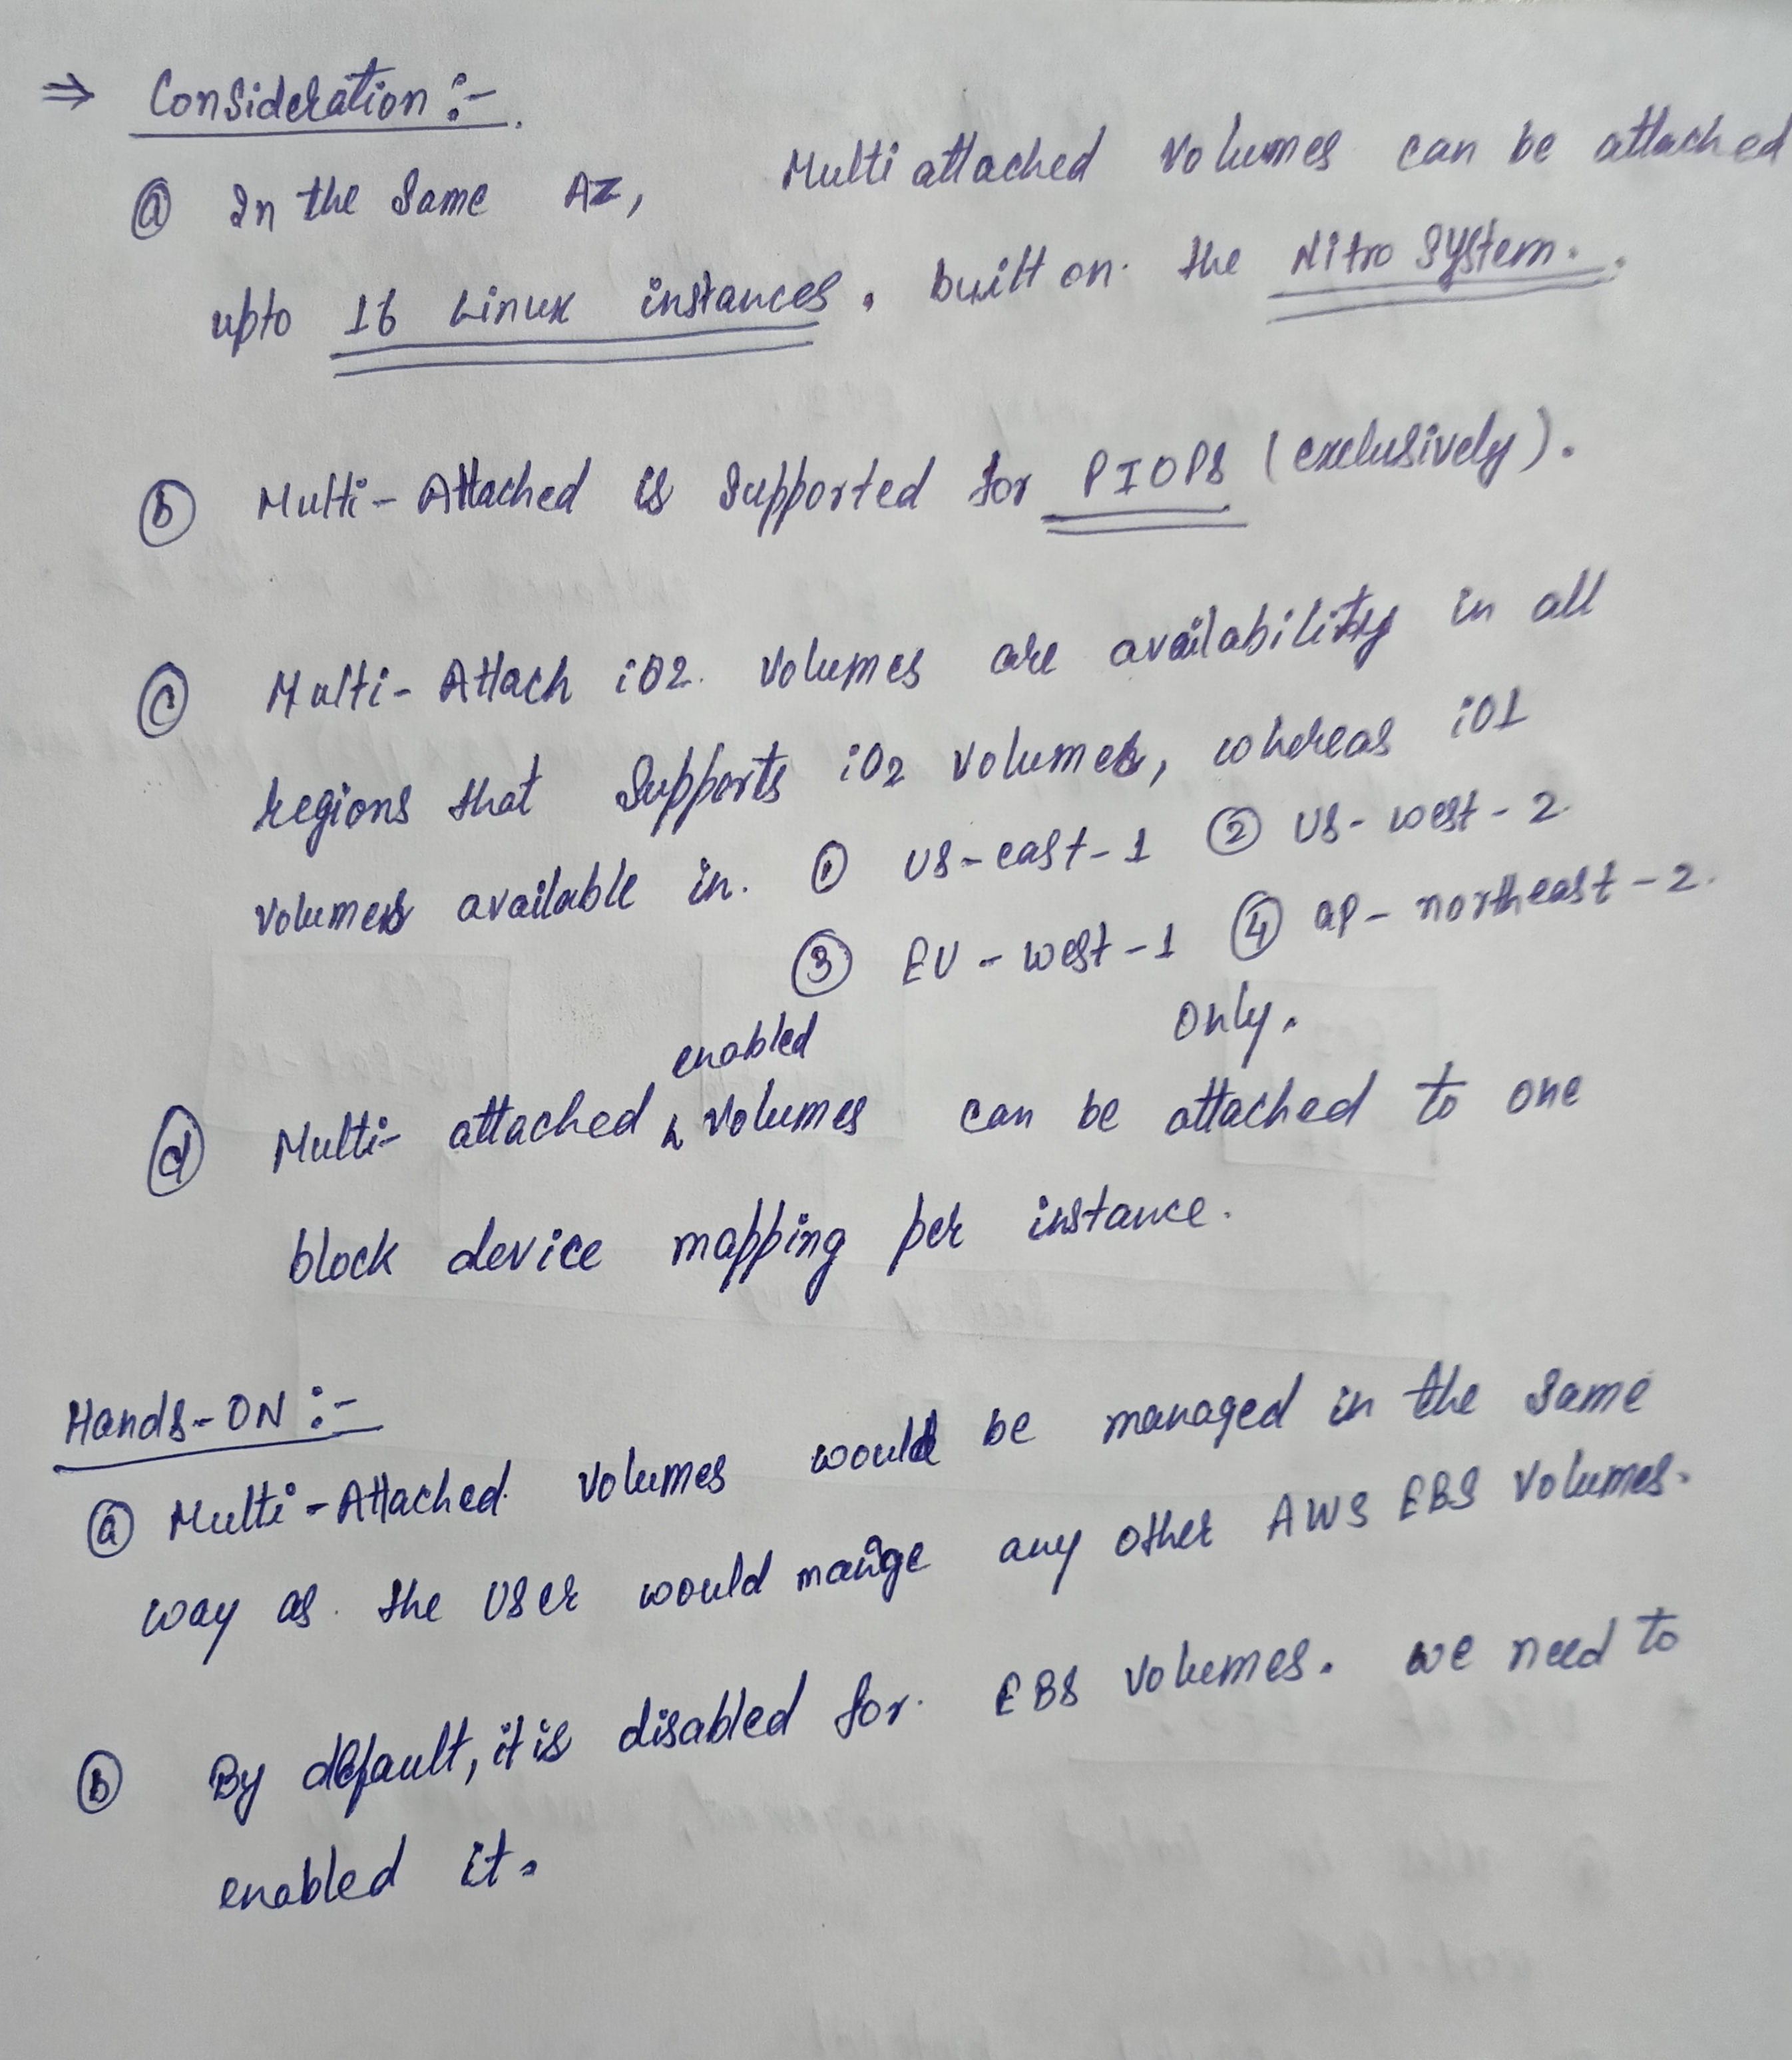 ⇒ Consideration :-
ⓐ In the same AZ, Multi attached volumes can be attached
upto 16 Linux instances, built on the Nitro System.
ⓑ Multi-Attached is supported for PIOPS (exclusively).
ⓒ Multi-Attach iO2 volumes are availability in all
regions that supports iO2 volumes, whereas iO1
volumes available in. ① US-east-1 ② US-west-2
③ EU-west-1 ④ ap-northeast-2.
only.
enabled
ⓓ Multi-attached volumes can be attached to one
block device mapping per instance.
Hands-ON :-
ⓐ Multi-Attached volumes would be managed in the same
way as the User would mange any other AWS EBS Volumes.
ⓑ By default, it is disabled for EBS volumes. we need to
enabled it.